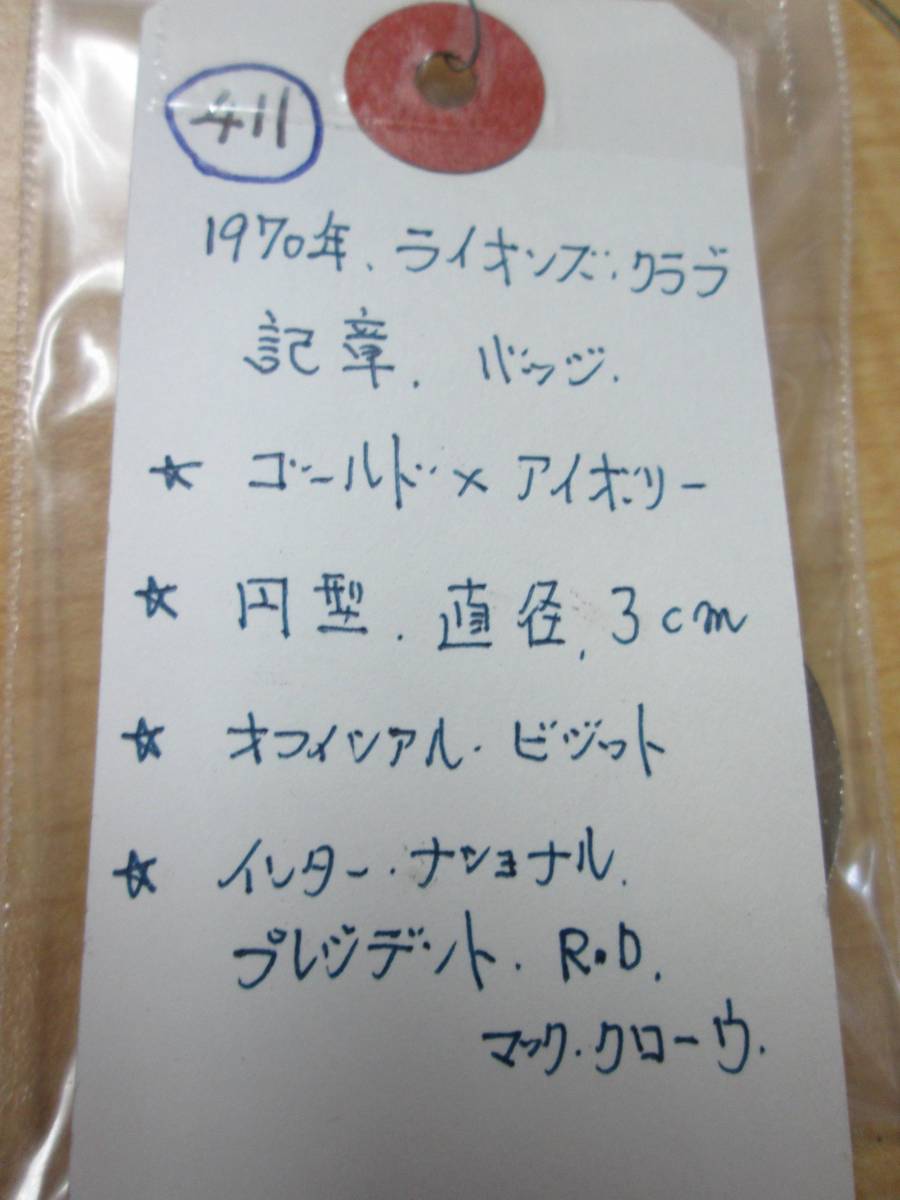 411
1970年、ライオンズ・クラブ
記章. バッジ.
★ ゴールド×アイボリー
★ 円型. 直径. 3cm
★ オフィシアル・ビジット
★ インター・ナショナル.
プレジデント. R.D.
マック・クローウ.